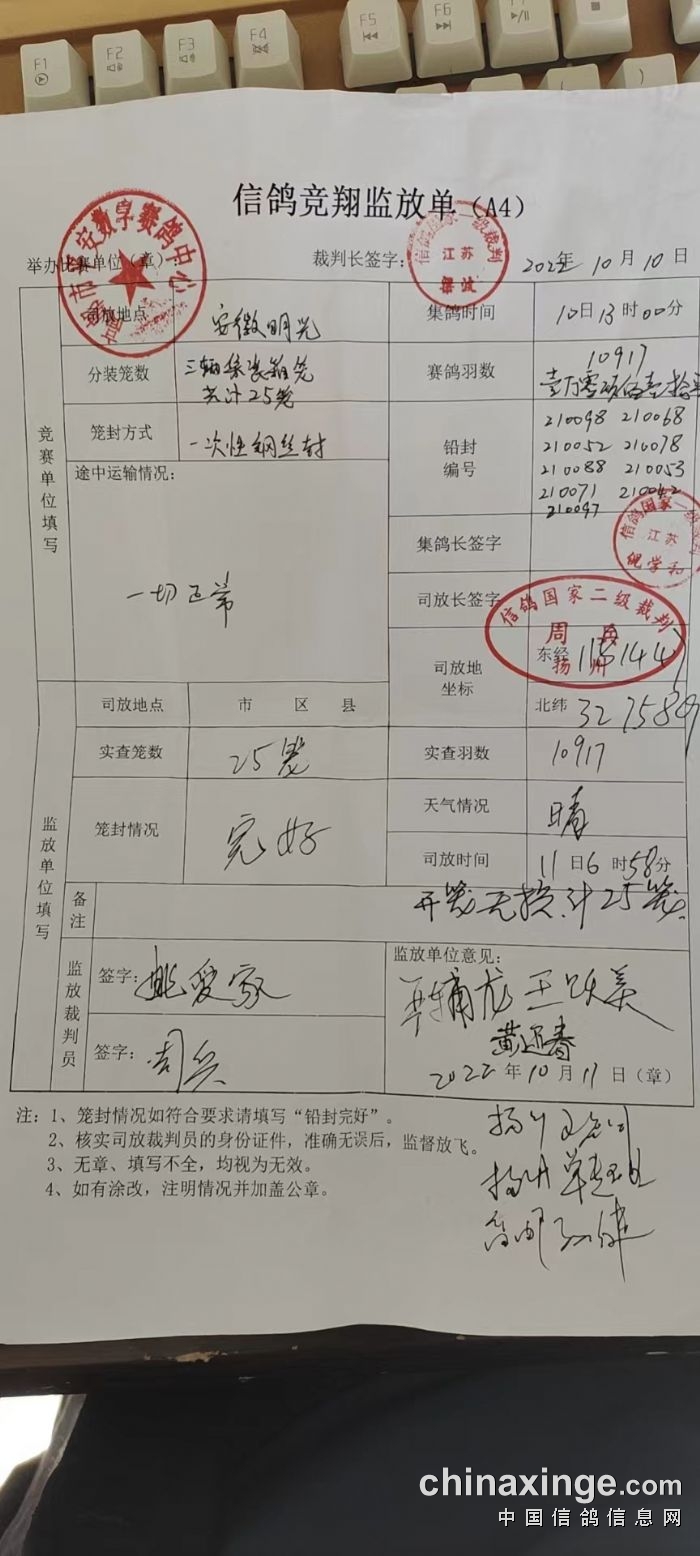 F1
F2
F3
F4
F5
F6
F7
信鸽竞翔监放单（A4）
举办比赛单位（章）：
裁判长签字：
2022年10月10日
安数字赛鸽中心
江苏
司放地点
安徽明光
集鸽时间
10日13时00分
分装笼数
三辆集装箱笼
共计25笼
赛鸽羽数
10917
笼封方式
一次性钢丝封
铅封
编号
210098 210068
210052 210078
210088 210053
210071 210042
210097
竞赛单位填写
途中运输情况：
一切正常
集鸽长签字
信鸽国家二级裁判
江苏
倪学和
司放长签字
信鸽国家二级裁判
周
扬州
司放地
坐标
东经
北纬
327589
监放单位填写
司放地点
市 区 县
实查笼数
25笼
实查羽数
10917
笼封情况
完好
天气情况
晴
司放时间
11日6时58分
备注
开笼无损，计25笼
监放裁判员
签字：姚爱家
签字：周兵
监放单位意见：
黄迎春
2022年10月11日（章）
注：1、笼封情况如符合要求请填写“铅封完好”。
2、核实司放裁判员的身份证件，准确无误后，监督放飞。
3、无章、填写不全，均视为无效。
4、如有涂改，注明情况并加盖公章。
chinaxinge.com
中国信鸽信息网